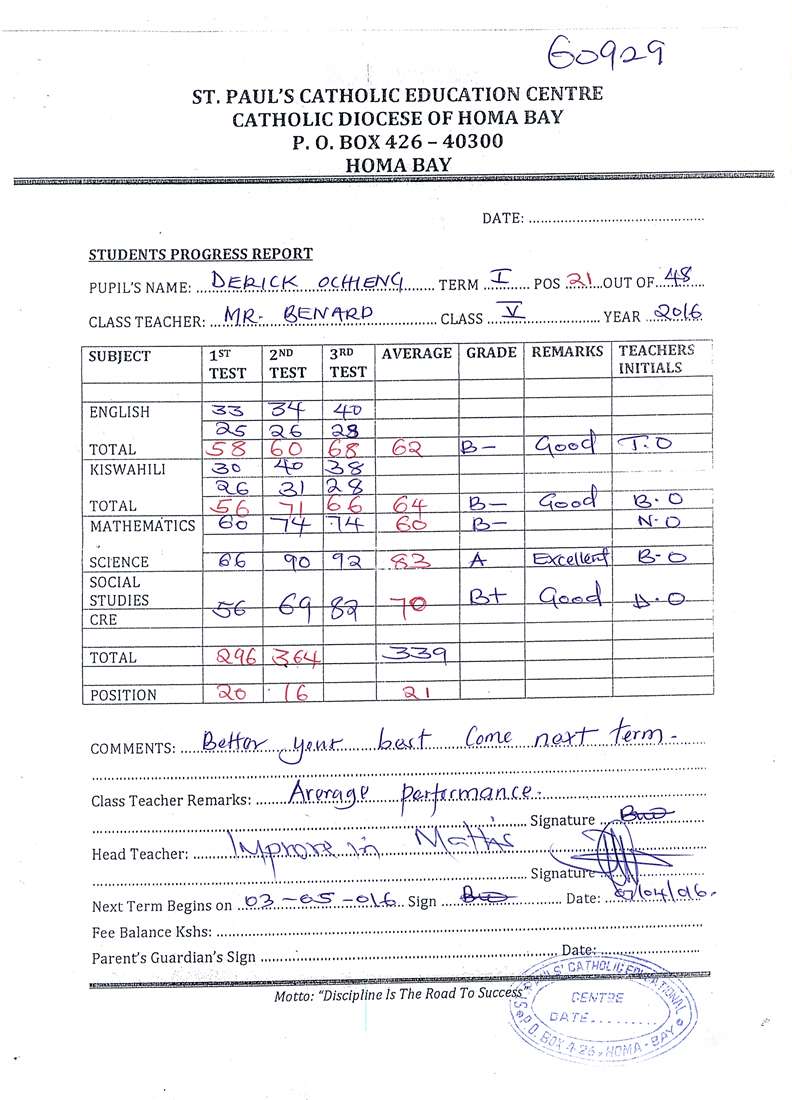 60929
ST. PAUL'S CATHOLIC EDUCATION CENTRE
CATHOLIC DIOCESE OF HOMA BAY
P. O. BOX 426 – 40300
HOMA BAY
DATE: ............................................
STUDENTS PROGRESS REPORT
PUPIL'S NAME: DERICK OCHIENG TERM I POS 21 OUT OF 48
CLASS TEACHER: MR. BENARD CLASS V YEAR 2016
SUBJECT 1ST TEST 2ND TEST 3RD TEST AVERAGE GRADE REMARKS TEACHERS INITIALS
ENGLISH 33 34 40
25 26 28
TOTAL 58 60 68 62 B- Good T.O
KISWAHILI 30 40 38
26 31 28
TOTAL 56 71 66 64 B- Good B.O
MATHEMATICS 60 74 74 60 B- N.O
SCIENCE 66 90 92 83 A Excellent B-O
SOCIAL
STUDIES 56 69 82 70 B+ Good D.O
CRE
TOTAL 296 364 339
POSITION 20 16 21
COMMENTS: Bettor your best Come next term.
Class Teacher Remarks: Average performance.
Signature
Head Teacher: Improve in Maths
Signature
Next Term Begins on 03-05-016 Sign Date: /04/016.
Fee Balance Kshs:
Parent's Guardian's Sign Date:
Motto: "Discipline Is The Road To Success"
ST. PAULS' CATHOLIC EDUCATIONAL
CENTRE
DATE.........
P.O. BOX 426, HOMA-BAY